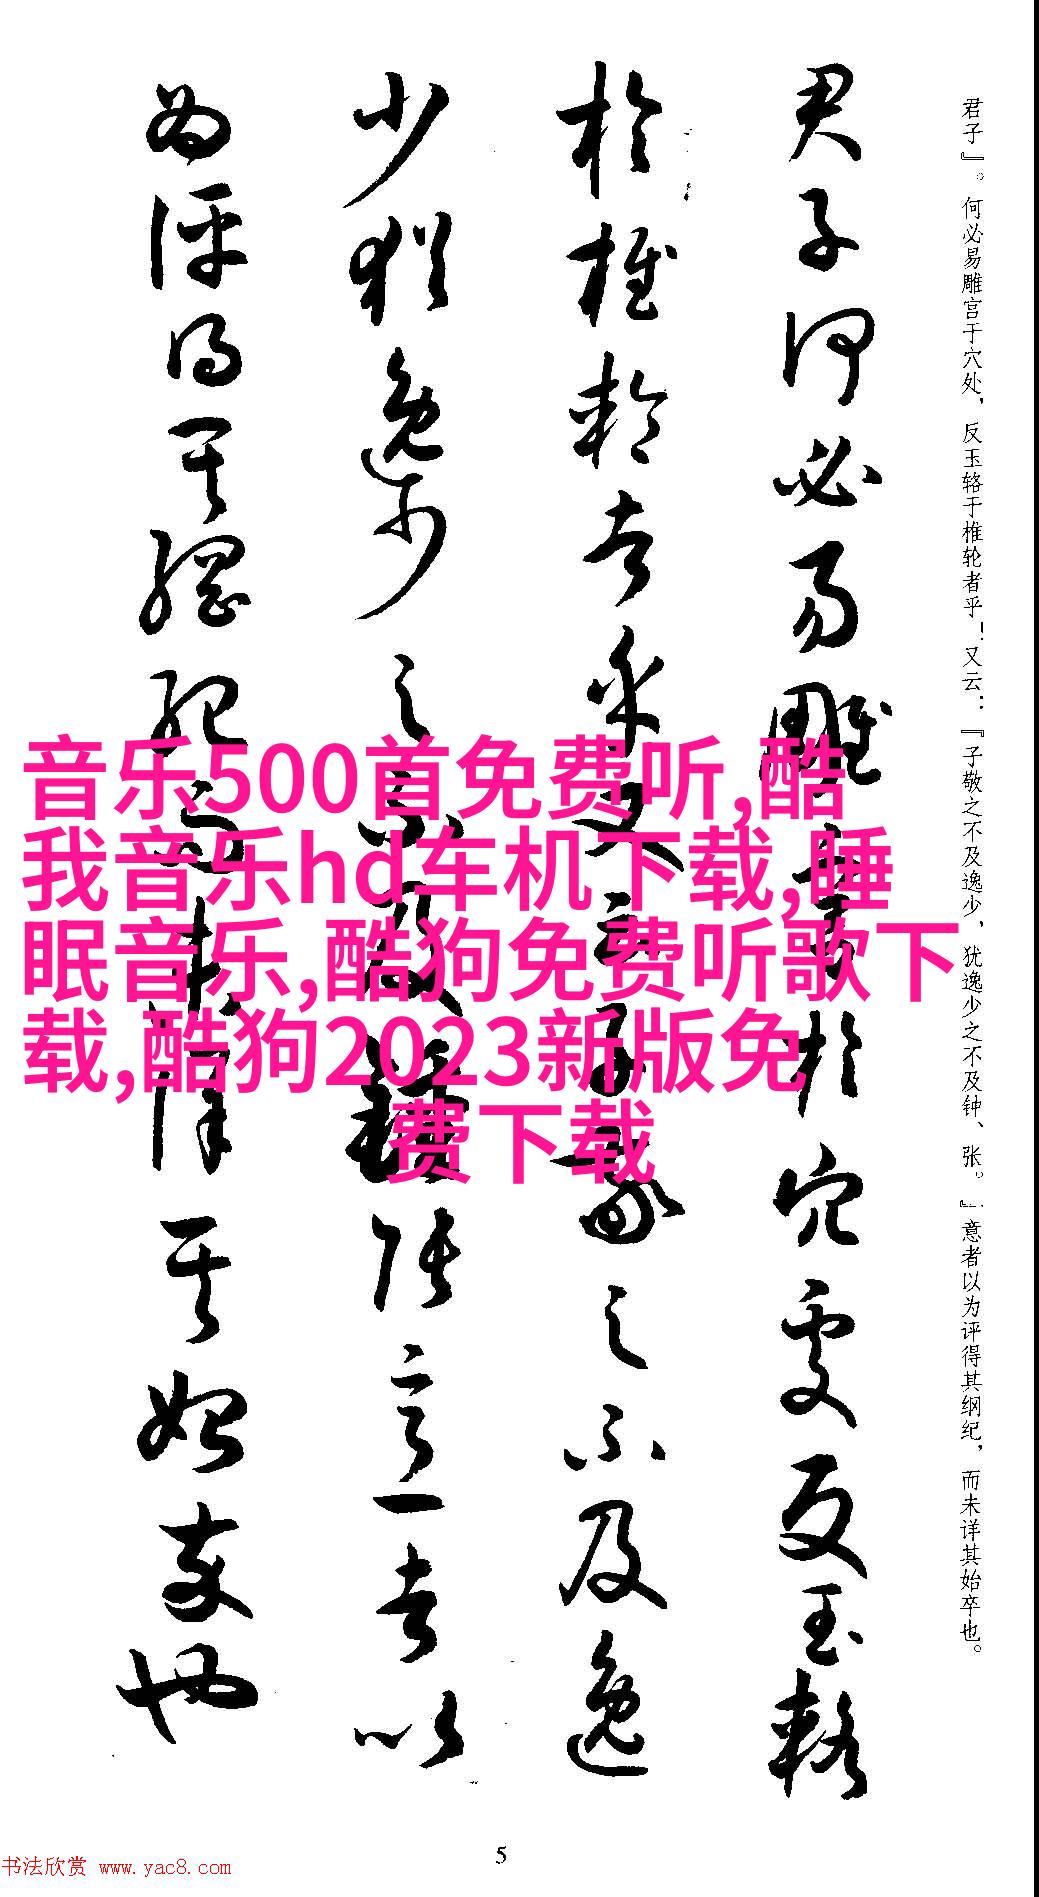 君子』。何必易雕宫于穴处，反玉辂于椎轮者乎！又云：『子敬之不及逸少，犹逸少之不及钟、张。』意者以为评得其纲纪，而未详其始卒也。
君子何必易雕宫於穴处反玉辂
於椎轮者乎又云子敬之不及逸
少犹逸少之不及钟张意者以
为评得其纲纪而未详其始卒也
音乐500首免费听,酷
我音乐hd车机下载,睡
眠音乐,酷狗免费听歌下
载,酷狗2023新版免
费下载
5
书法欣赏 www.yac8.com